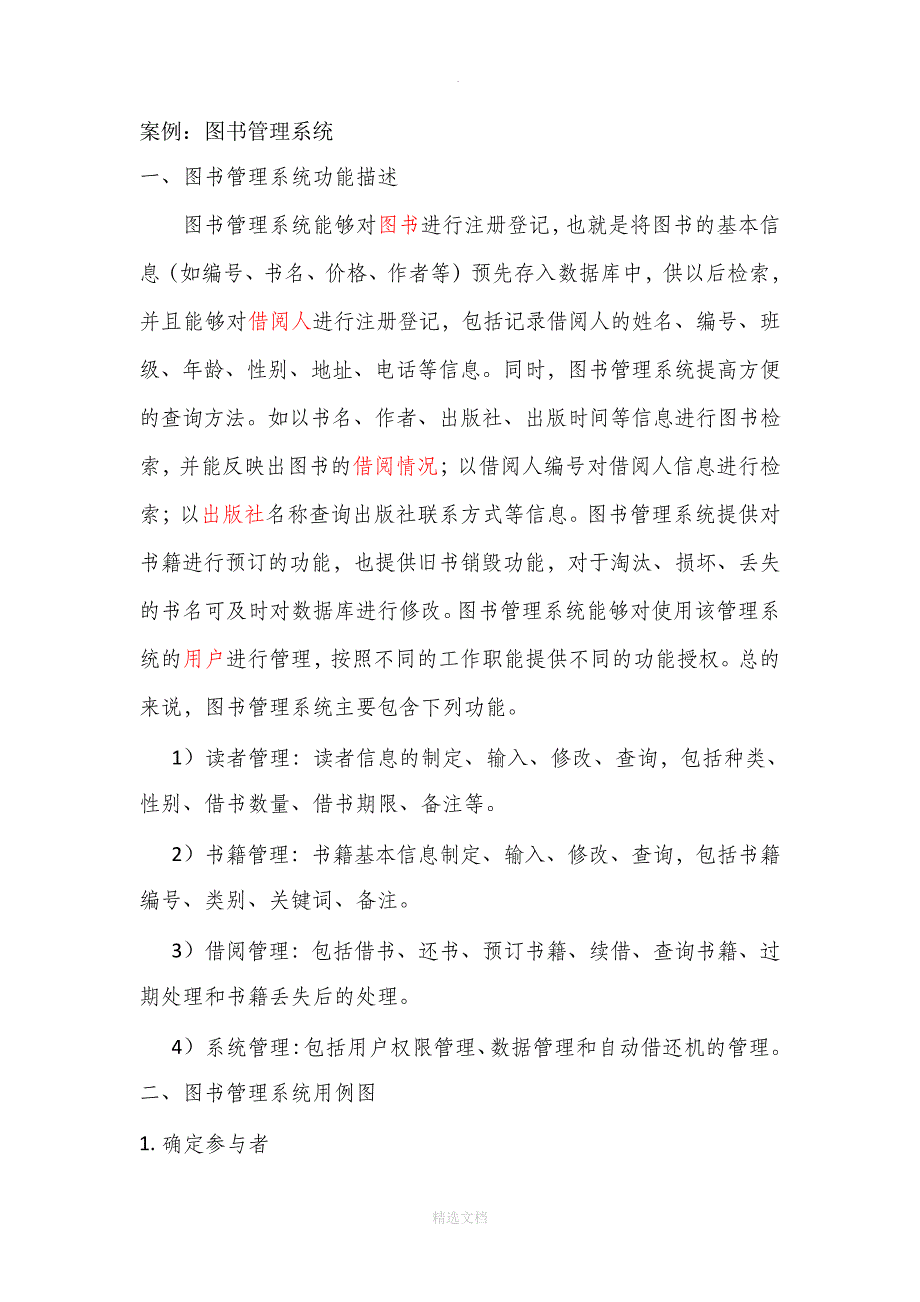 案例：图书管理系统
一、图书管理系统功能描述
图书管理系统能够对图书进行注册登记，也就是将图书的基本信
息（如编号、书名、价格、作者等）预先存入数据库中，供以后检索，
并且能够对借阅人进行注册登记，包括记录借阅人的姓名、编号、班
级、年龄、性别、地址、电话等信息。同时，图书管理系统提高方便
的查询方法。如以书名、作者、出版社、出版时间等信息进行图书检
索，并能反映出图书的借阅情况；以借阅人编号对借阅人信息进行检
索；以出版社名称查询出版社联系方式等信息。图书管理系统提供对
书籍进行预订的功能，也提供旧书销毁功能，对于淘汰、损坏、丢失
的书名可及时对数据库进行修改。图书管理系统能够对使用该管理系
统的用户进行管理，按照不同的工作职能提供不同的功能授权。总的
来说，图书管理系统主要包含下列功能。
1）读者管理：读者信息的制定、输入、修改、查询，包括种类、
性别、借书数量、借书期限、备注等。
2）书籍管理：书籍基本信息制定、输入、修改、查询，包括书籍
编号、类别、关键词、备注。
3）借阅管理：包括借书、还书、预订书籍、续借、查询书籍、过
期处理和书籍丢失后的处理。
4）系统管理：包括用户权限管理、数据管理和自动借还机的管理。
二、图书管理系统用例图
1. 确定参与者
精选文档